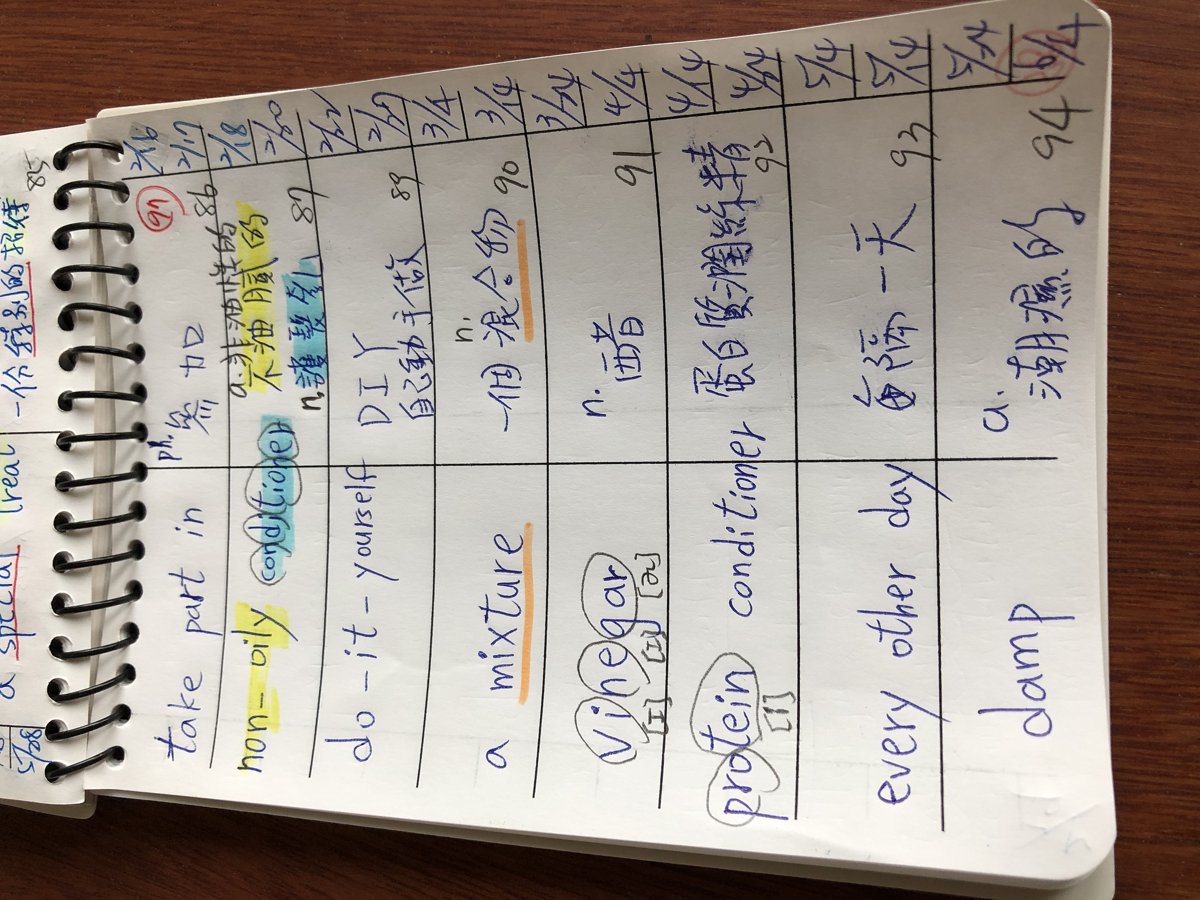 5/28
a special treat 一份特別的招待 85
2/16 2/17 2/18 2/20 2/22 2/27 3/4 3/14 3/24 4/4 4/14 4/24 5/4 5/14 5/24 6/4
take part in ph. 參加 86
non-oily conditioner a.非油性的
不油膩的
n.護髮乳 87
do-it-yourself DIY
自己動手做 89
a mixture n.
一個混合物 90
vinegar n. 醋 91
[ɪ] [ɪ] [ɚ]
protein conditioner 蛋白質潤絲精 92
[i]
every other day 每隔一天 93
damp a.
潮濕的 94